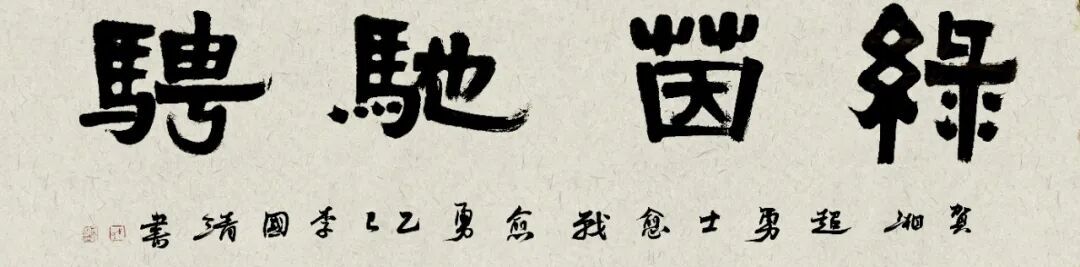 綠茵馳騁
賀湘超勇士愈戰愈勇乙巳李國清書